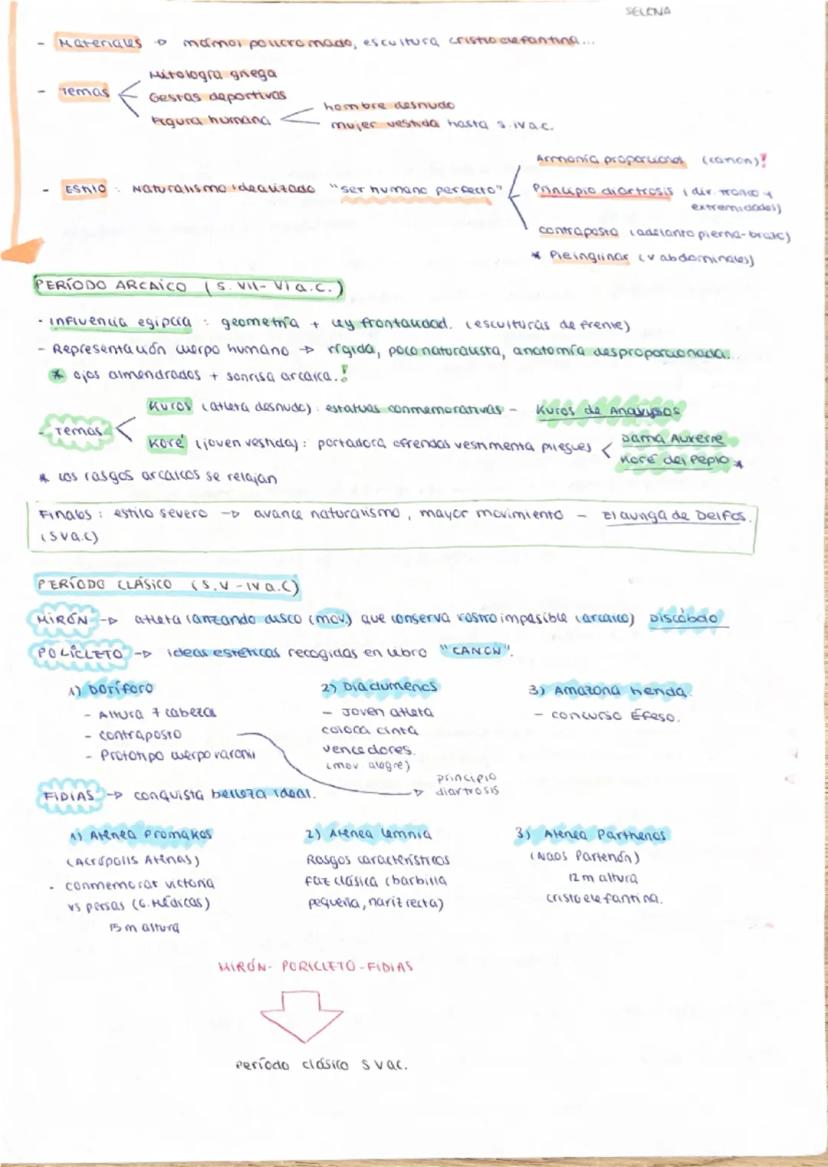 SELENA
- Materiales → mármol policromado, escultura cristioelefantina...
- Temas
Mitología griega
Gestas deportivas
Figura humana
hombre desnudo
mujer vestida hasta s. IV a.C.
- Estilo : Naturalismo idealizado "ser humano perfecto"
Armonía proporcional (canon)!
Principio diartrosis (div tronco y
extremidades)
contraposto (adelanto pierna-brazo)
* Pleinguinar (v abdominales)
PERÍODO ARCAICO (S. VII - VI a.C.)
- Influencia egipcia : geometría + ley frontalidad. (esculturas de frente)
- Representación cuerpo humano → rígida, poco naturalista, anatomía desproporcionada...
* ojos almendrados + sonrisa arcaica.!
- Temas
Kuros (atleta desnudo) : estatuas conmemorativas - Kuros de Anavysos
Koré (joven vestida) : portadora ofrendas vestimenta pliegues
Dama Auxerre
Koré del Peplo *
* Los rasgos arcaicos se relajan
Finales : estilo severo → avance naturalismo, mayor movimiento - El auriga de Delfos.
(S V a.C)
PERÍODO CLÁSICO (S. V - IV a.C)
MIRÓN → atleta lanzando disco (mov.) que conserva rostro impasible (arcaico) Discóbolo
POLÍCLETO → ideas estéticas recogidas en libro "CANON".
1) Doríforo
- Altura 7 cabezas
- contraposto
- Prototipo cuerpo varonil
2) Diadumenos
- Joven atleta
coloca cinta
vencedores.
(mov alegre)
3) Amazona herida.
- concurso Éfeso.
principio
diartrosis
FIDIAS → conquista belleza ideal.
1) Atenea Promakos
(Acrópolis Atenas)
- conmemorar victoria
vs persas (G. Médicas)
15 m altura
2) Atenea Lemnia
Rasgos característicos
faz clásica (barbilla
pequeña, nariz recta)
3) Atenea Parthenos
(Naos Partenón)
12 m altura
cristoelefantina.
MIRÓN - PORICLETO - FIDIAS
Período clásico S V a.C.